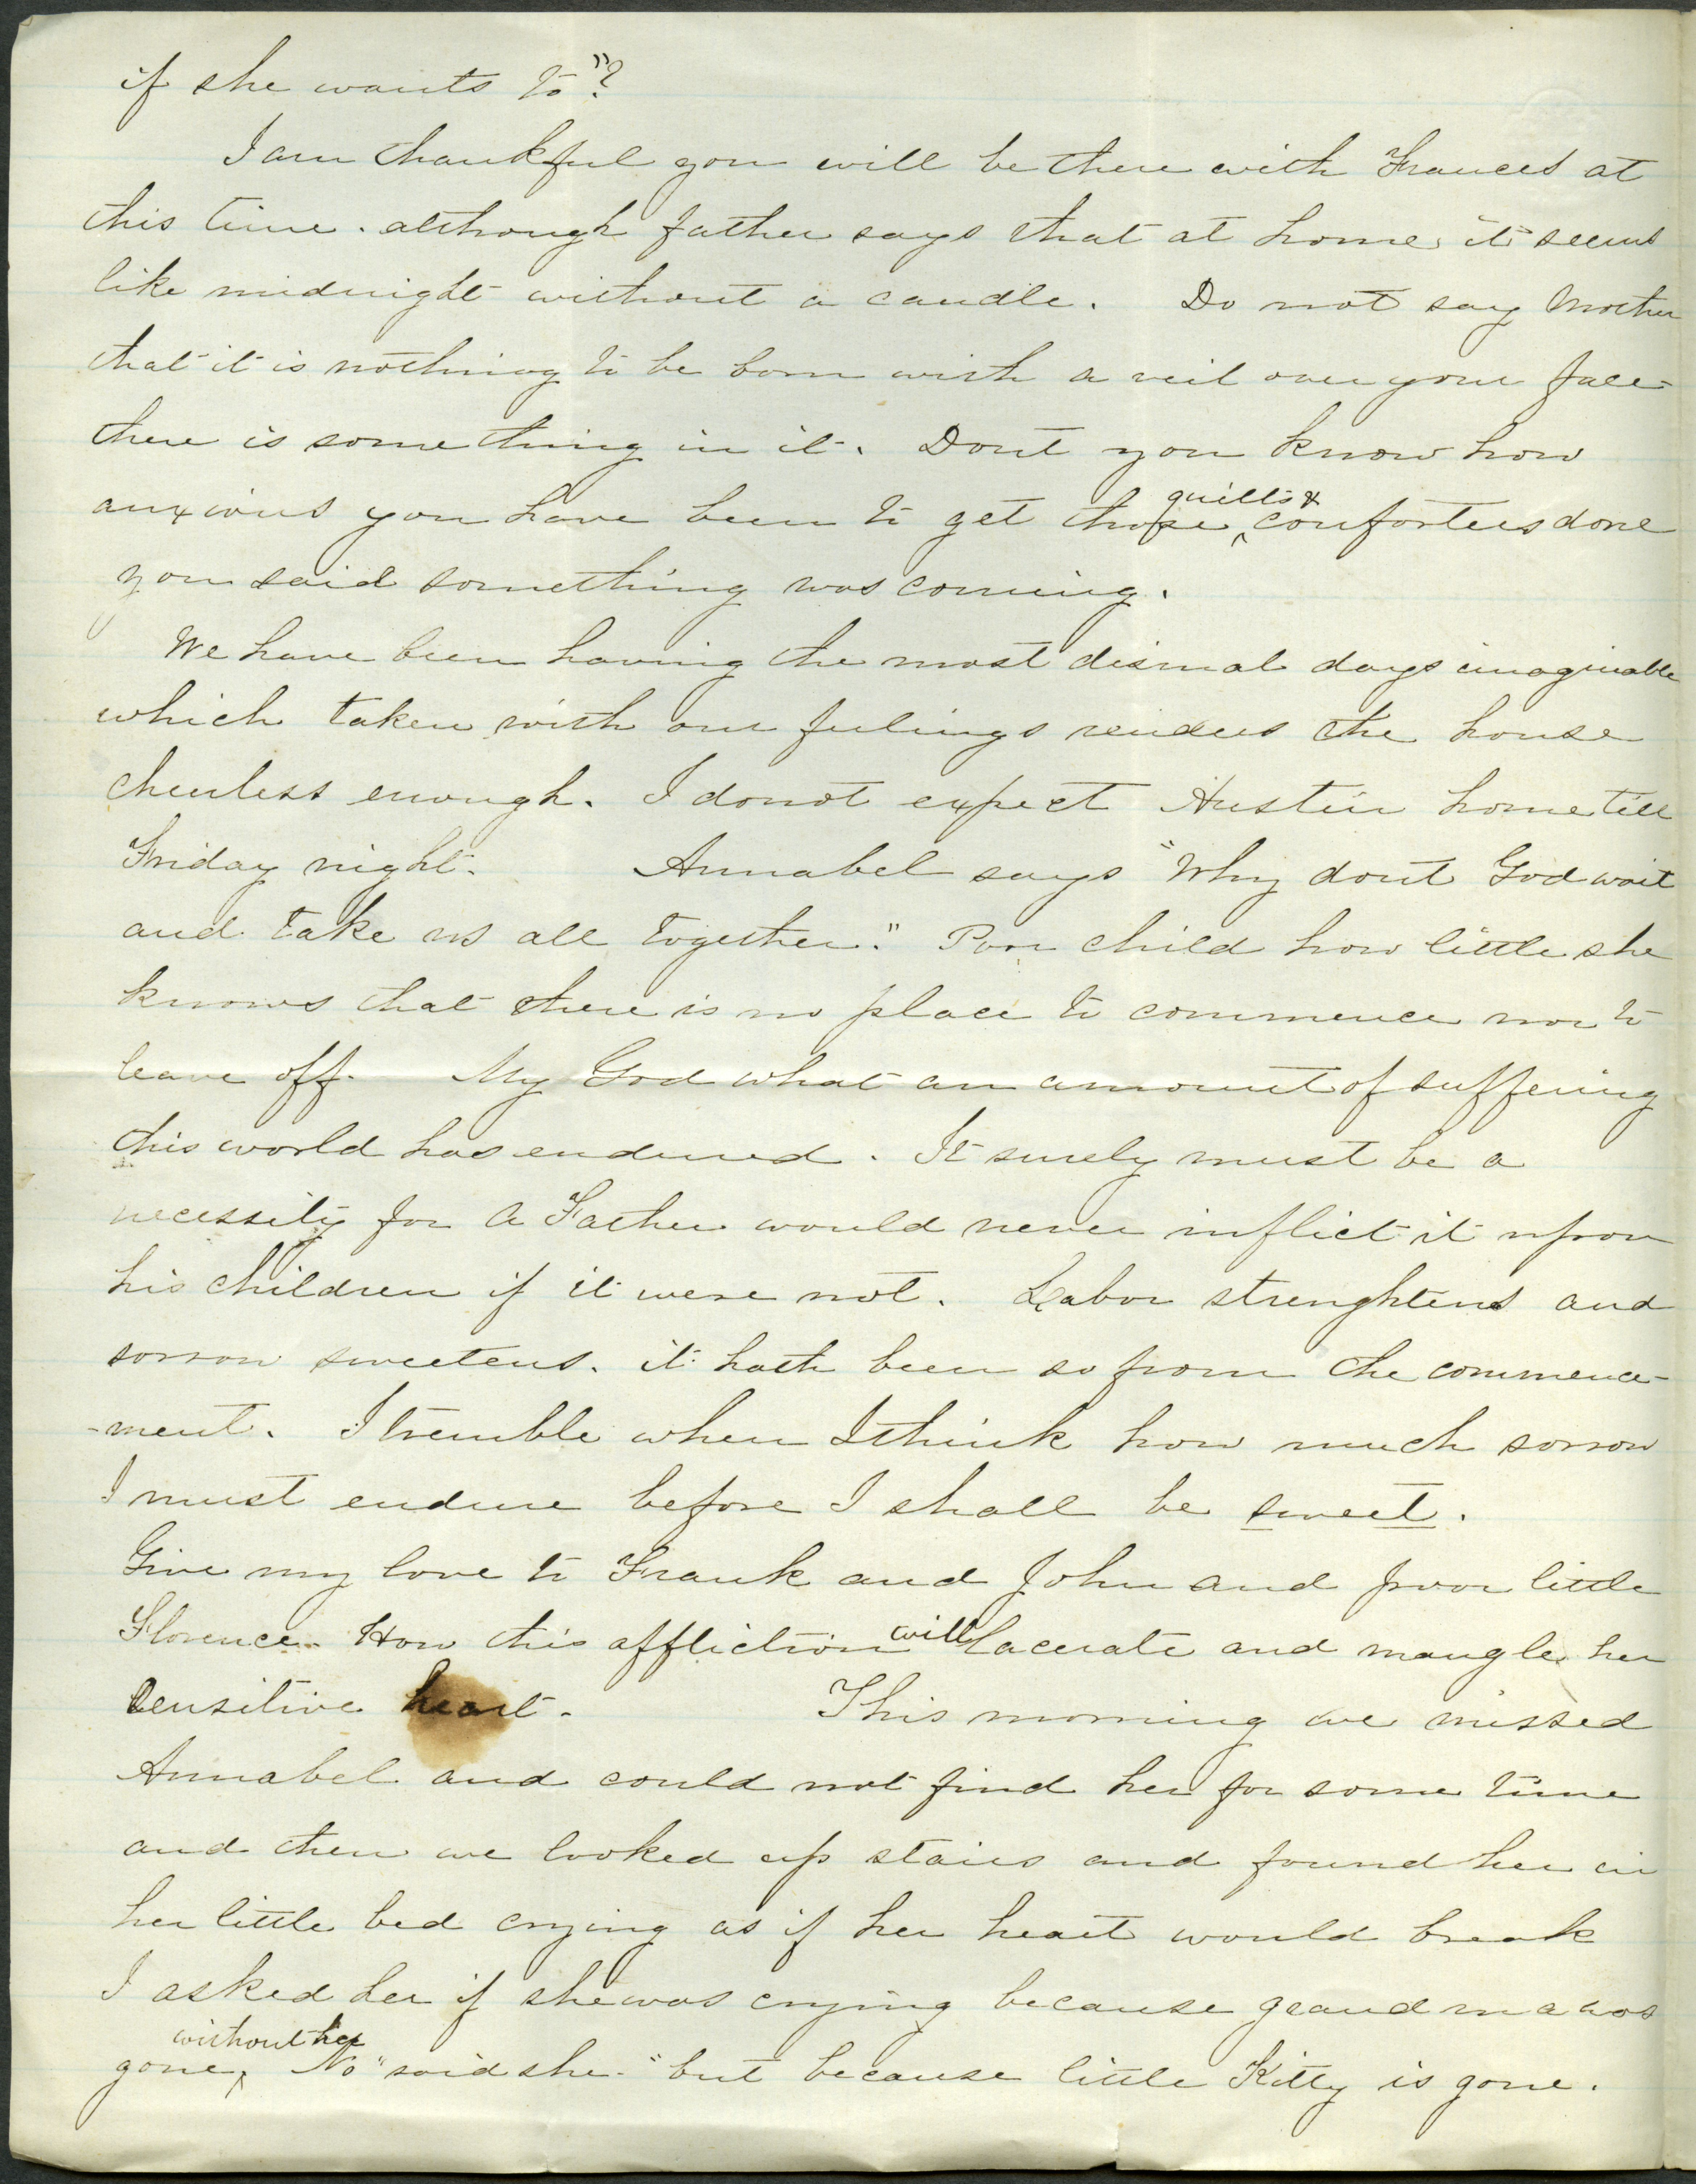 if she wants to"?
I am thankful you will be there with Frances at
this time. although father says that at home it seems
like midnight without a candle. Do not say Mother
that it is nothing to be born with a veil over your face -
there is some thing in it. Dont you know how
anxious you have been to get those quilts & comforters done
you said something was coming.
We have been having the most dismal days imaginable
which taken with our feelings renders the house
cheerless enough. I do not expect Austin home till
Friday night. Annabel says "Why dont God wait
and take us all together." Poor child how little she
knows that there is no place to commence nor to
leave off. My God what an amount of suffering
this world has endured. It surely must be a
necessity for a Father would never inflict it upon
his children if it were not. Labor strenghtens and
sorrow sweetens. it hath been so from the commence-
-ment. I tremble when I think how much sorrow
I must endure before I shall be sweet.
Give my love to Frank and John and poor little
Florence. How this affliction will lacerate and mangle her
sensitive heart. This morning we missed
Annabel and could not find her for some time
and then we looked up stairs and found her in
her little bed crying as if her heart would break
I asked her if she was crying because grandma was
gone without her, No" said she. "but because little Kitty is gone.